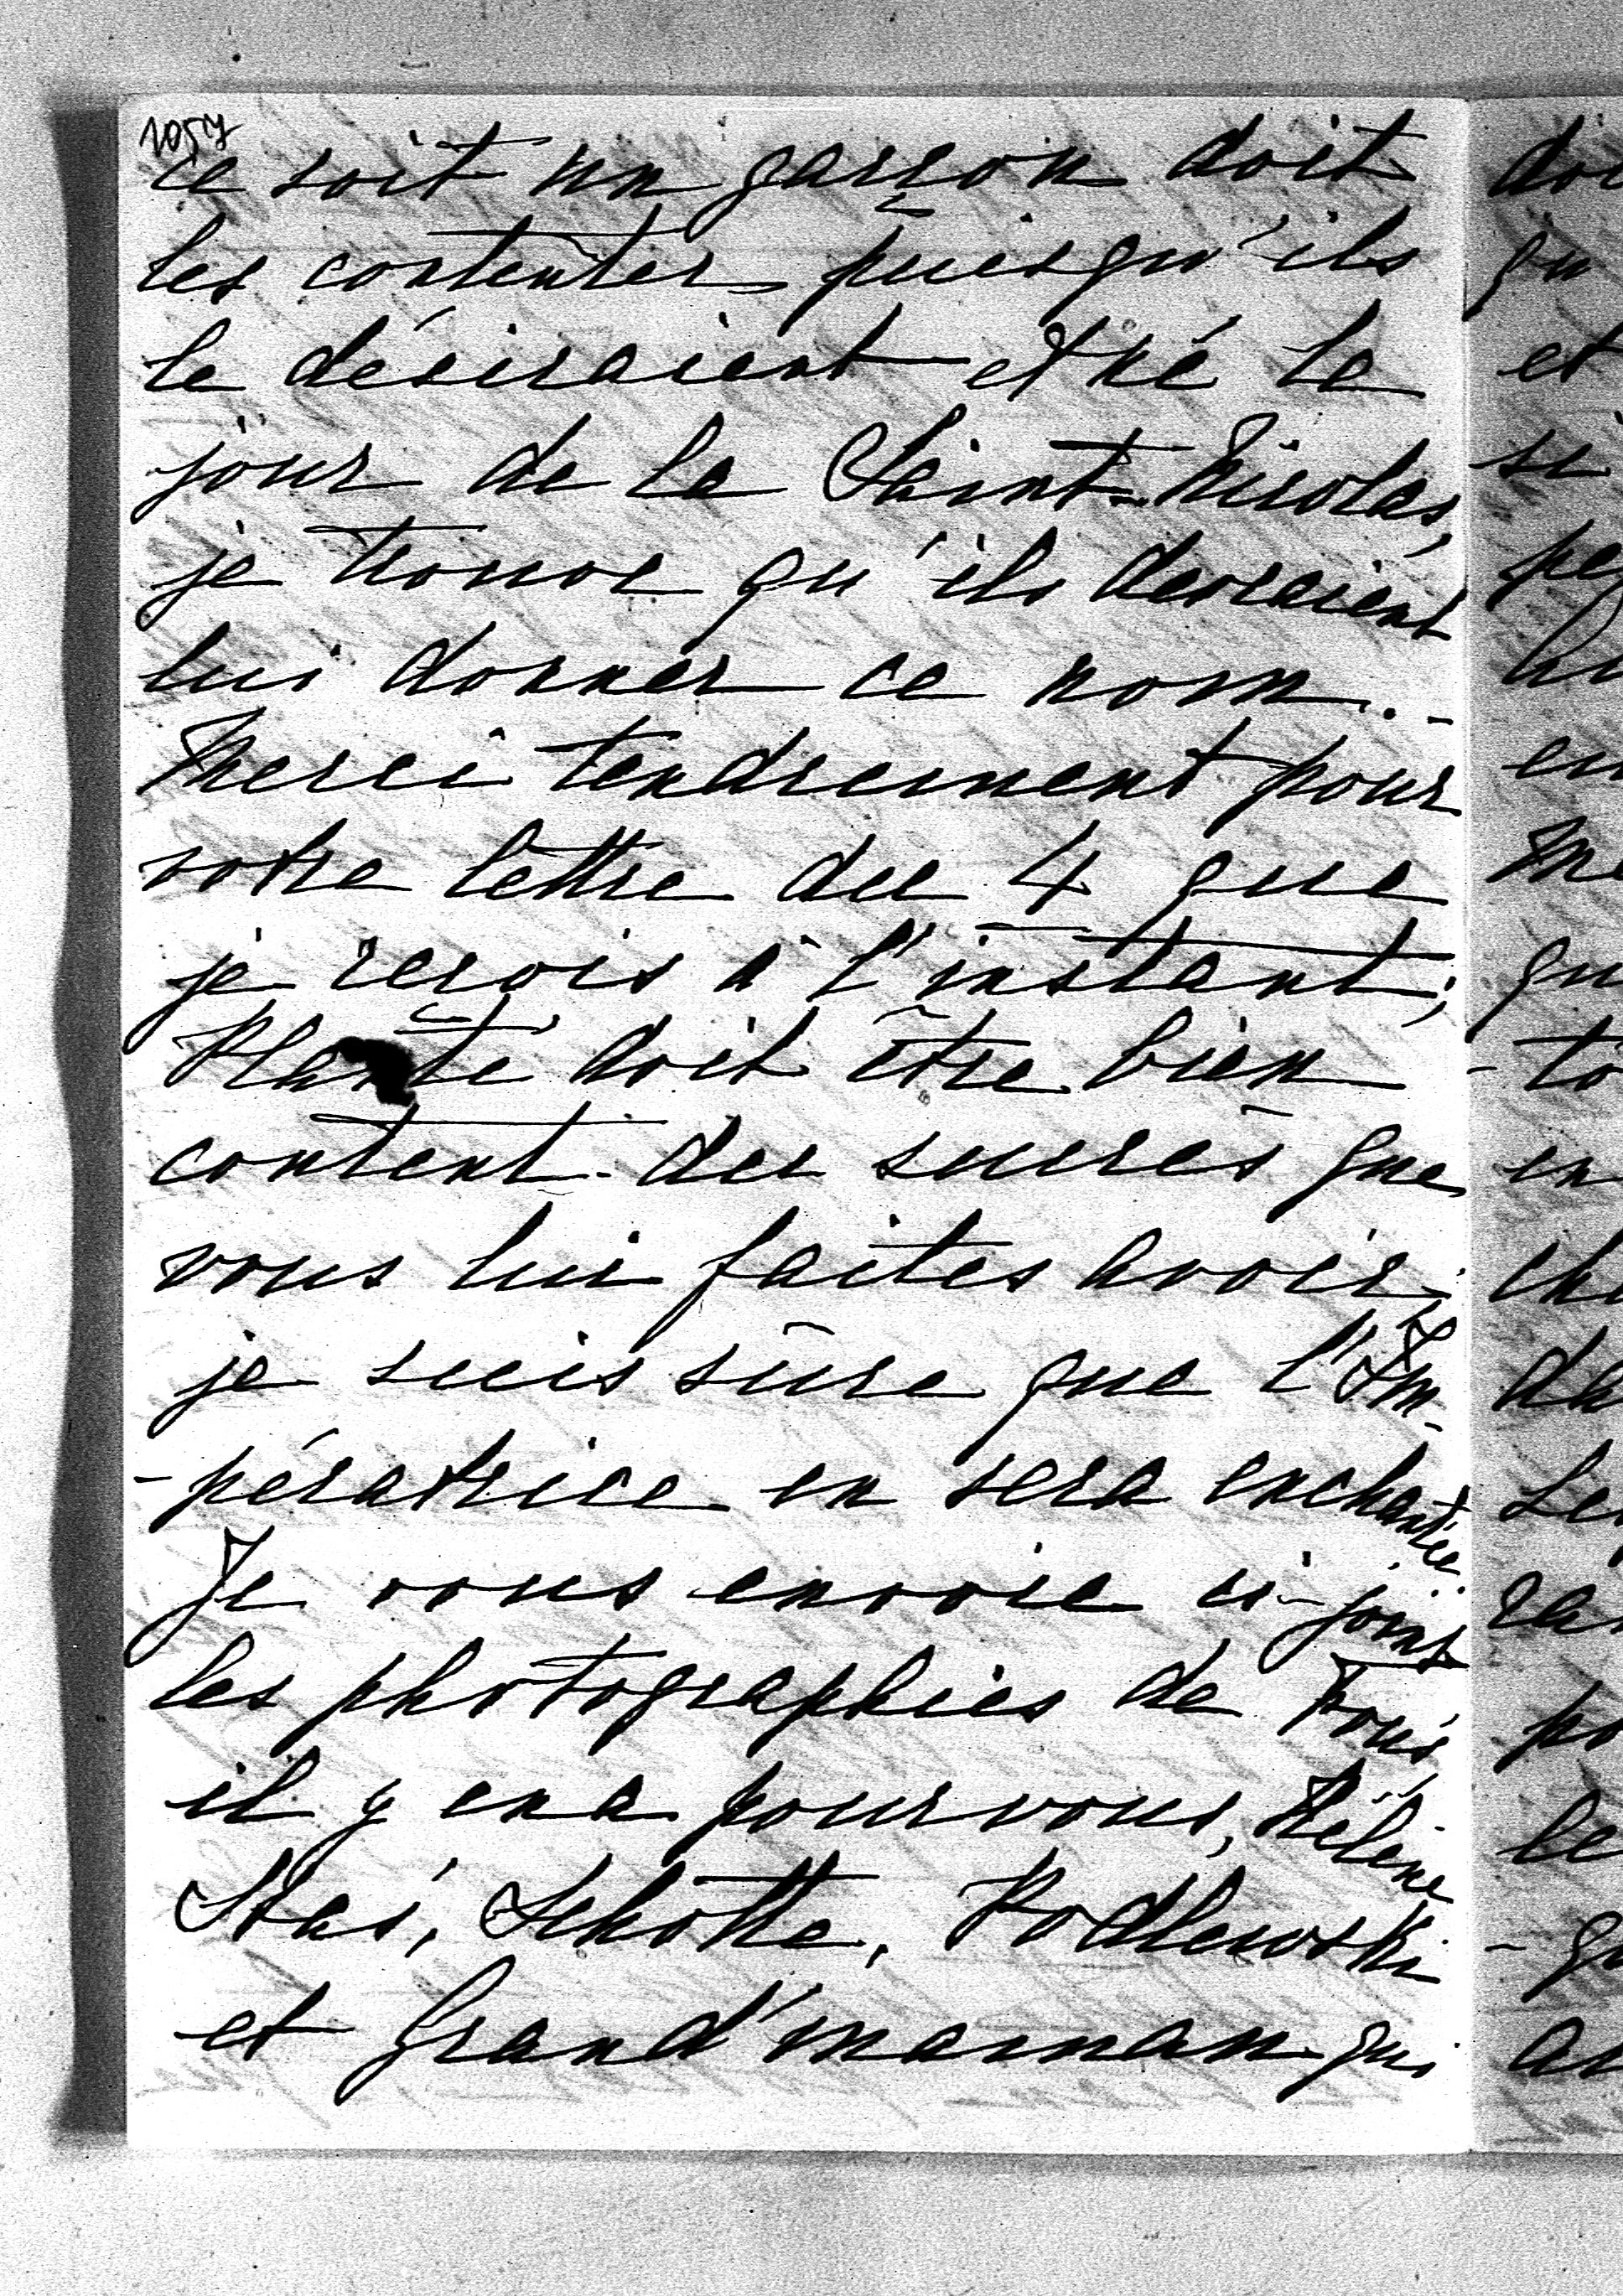 1057
ce soit un garçon doit
les contenter puisqu'ils
le désiraient et né le
jour de la Saint-Nicolas,
je trouve qu'ils devraient
lui donner ce nom. -
Merci tendrement pour
votre lettre du 4 que
je reçois à l'instant;
Planté doit être bien
content du succès que
vous lui faites avoir;
je suis sûre que l'Im-
-pératrice en sera enchantée.
Je vous envoie ci-joint
les photographies de
il y en a pour vous, Hélène
Stas, Schotte, Podlewski
et Grand'maman qui